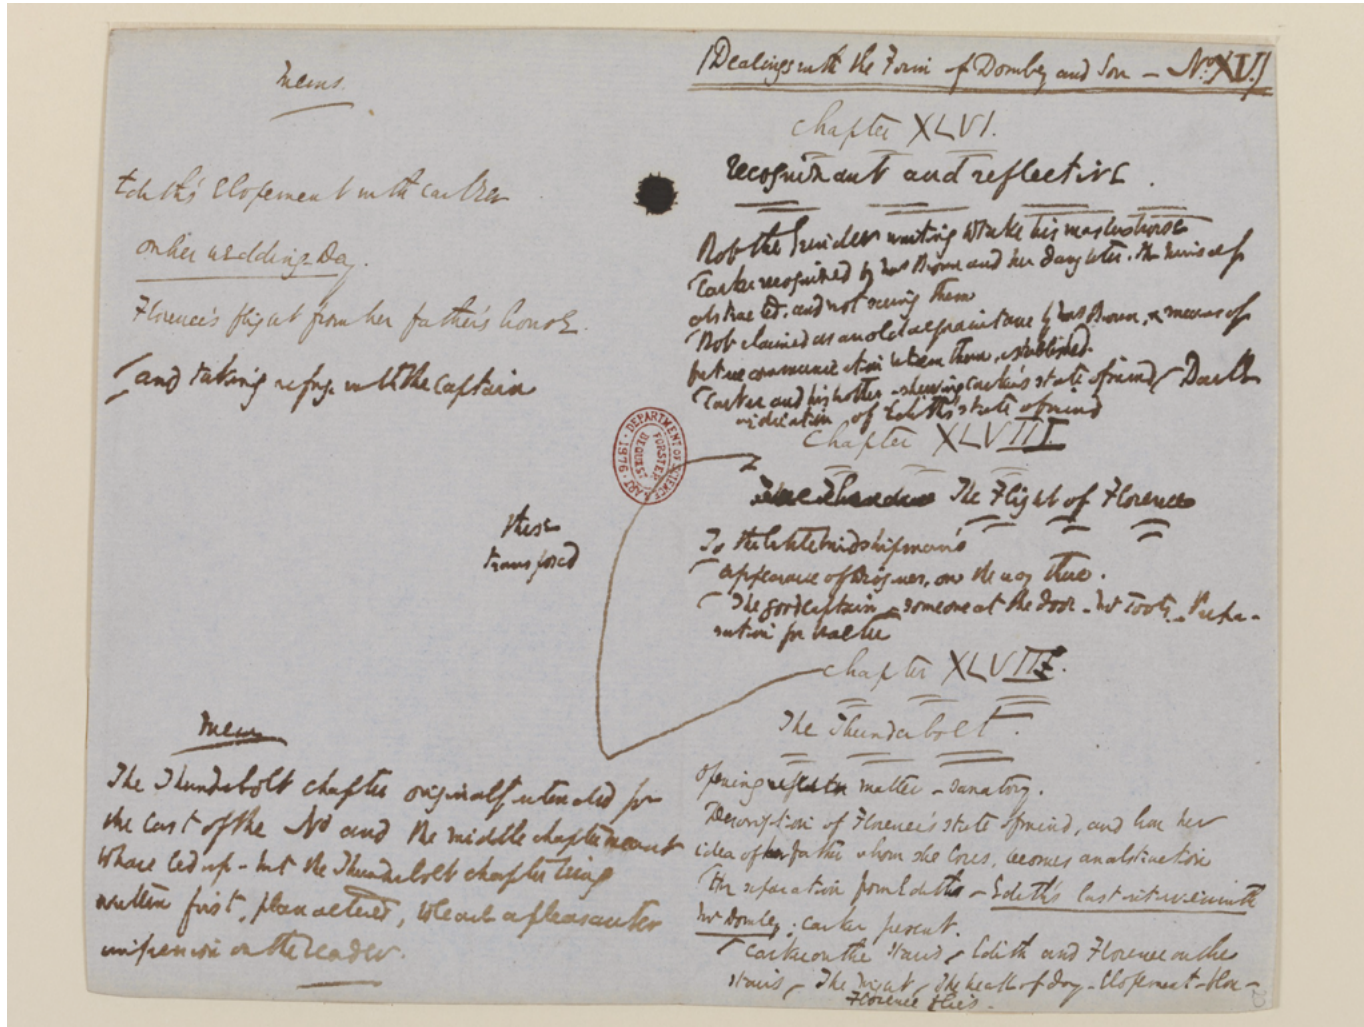 Mems.
Edith's elopement with Carker
on her wedding Day.
Florence's flight from her father's house.
and taking refuge with the Captain
these
transposed
Mem
The Thunderbolt chapter originally intended for
the last of the No and the middle chapter meant
to have led up to it - but the Thunderbolt chapter being
written first, plan altered, to leave a pleasanter
impression on the reader.
(Dealings with the Firm of Dombey and Son — No. XV.)
Chapter XLVI.
Recognizant and reflective.
Rob the Grinder waiting to take his master's horse
Carker recognized by Mrs Brown and her daughter. He himself
abstracted, and not seeing them
Rob claimed as an old acquaintance by Mrs Brown, & means of
future communication between them, established.
Carker and his brother - shewing Carker's state of mind, Dark
indication of Edith's state of mind
Chapter XLVIII.
The Flight of Florence
To the little Midshipman's
appearance of Diogenes, on the way there.
The good Captain - someone at the door - Mr Toots - Prepa-
ration for Walter
Chapter XLVII.
The Thunderbolt.
Opening matter - sanatory.
Description of Florence's state of mind, and how her
idea of her father whom she loves, becomes an abstraction
The separation from Edith - Edith's last interview with
Mr Dombey; Carker present.
Carker on the stairs, Edith and Florence on the
stairs - The night - The heat of day - Elopement - Blow -
Florence flies.
DEPARTMENT OF SCIENCE & ART · 1876 ·
FORSTER BEQUEST